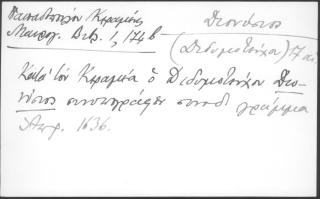 Παπαδόπουλου Κεραμέως
Μαυρογ. Βιβ. 1, 174 b
Διονύσιος
(Διδυμοτείχου) 17 αἰ.
Κατὰ τὸν Κεραμέα ὁ Διδυμοτείχου Διο-
νύσιος συνυπογράφει συνοδ. γράμμα
Ἀπρ. 1636.